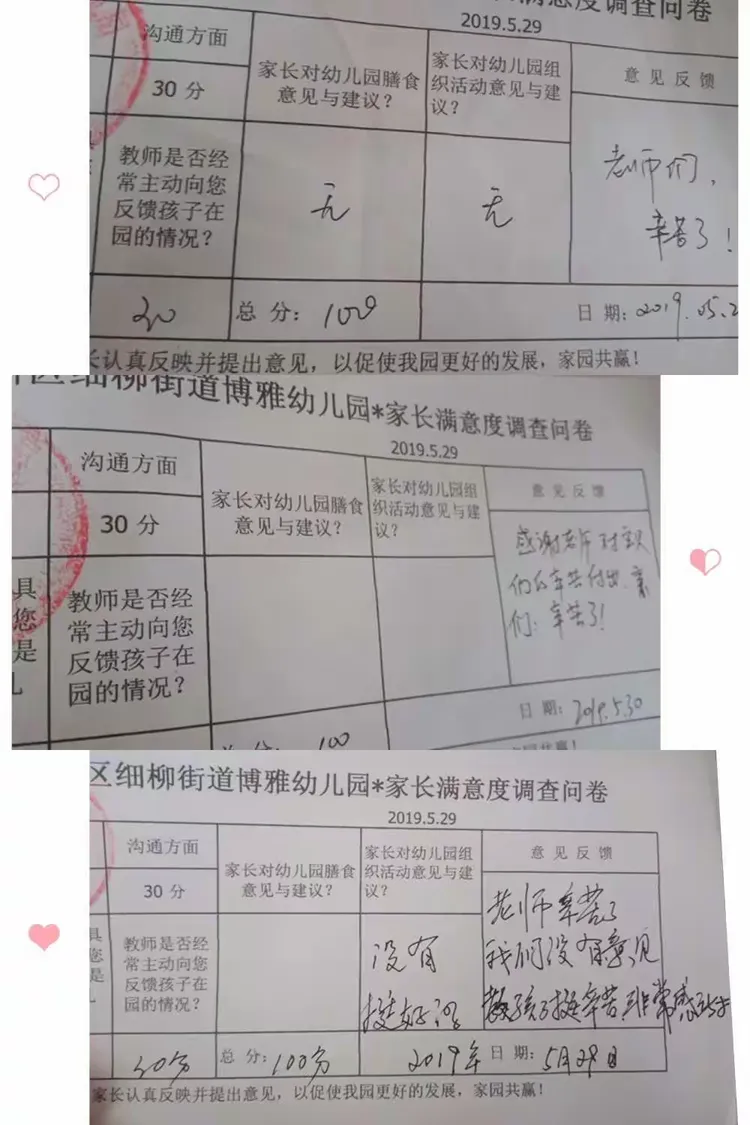 满意度调查问卷
2019.5.29
沟通方面
家长对幼儿园膳食
意见与建议?
家长对幼儿园组
织活动意见与建
议?
意见反馈
30分
教师是否经
常主动向您
反馈孩子在
园的情况?
无
无
老师们,
辛苦了!
30
总分: 100
日期: 2019.05.2
长认真反映并提出意见,以促使我园更好的发展,家园共赢!
区细柳街道博雅幼儿园*家长满意度调查问卷
2019.5.29
沟通方面
家长对幼儿园膳食
意见与建议?
家长对幼儿园组
织活动意见与建
议?
意见反馈
30分
具
您
是
教师是否经
常主动向您
反馈孩子在
园的情况?
感谢老师对宝贝
们的辛苦付出,亲
们:辛苦了!
日期: 2019.5.30
总分: 100
区细柳街道博雅幼儿园*家长满意度调查问卷
2019.5.29
沟通方面
家长对幼儿园膳食
意见与建议?
家长对幼儿园组
织活动意见与建
议?
意见反馈
30分
具
您
是
教师是否经
常主动向您
反馈孩子在
园的情况?
没有
挺好的
老师辛苦了
我们没有意见
教孩子挺辛苦非常感谢
30分
总分: 100分
2019年 日期: 5月29日
家长认真反映并提出意见,以促使我园更好的发展,家园共赢!